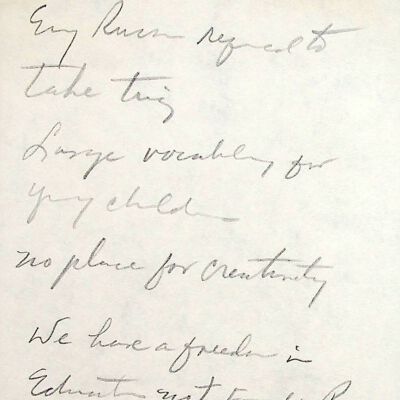 Every Russian required to
take trig
Large vocabulary for
young children
no place for creativity
We have a freedom in
Education not